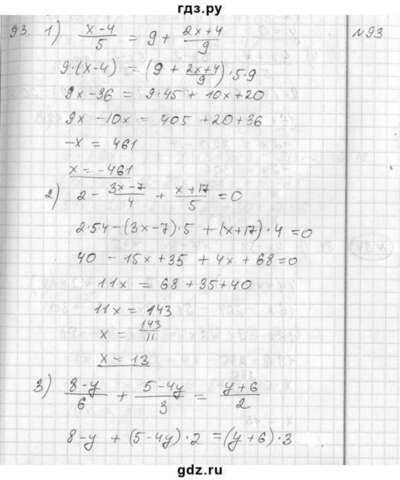 гдз.ру
93. 1) (x-4)/5 = 9 + (2x+4)/9
№93
9·(x-4) = (9 + (2x+4)/9)·5·9
9x-36 = 9·45 + 10x+20
9x -10x = 405 +20+36
-x = 461
x = -461
2) 2 - (3x-7)/4 + (x+17)/5 = 0
2·54-(3x-7)·5 + (x+17)·4 =0
40 - 15x +35 + 4x + 68=0
11x = 68 +35+40
11x = 143
x = 143/11
x = 13
3) (8-y)/6 + (5-4y)/3 = (y+6)/2
8-y + (5-4y)·2 =(y+6)·3
gdz.ru